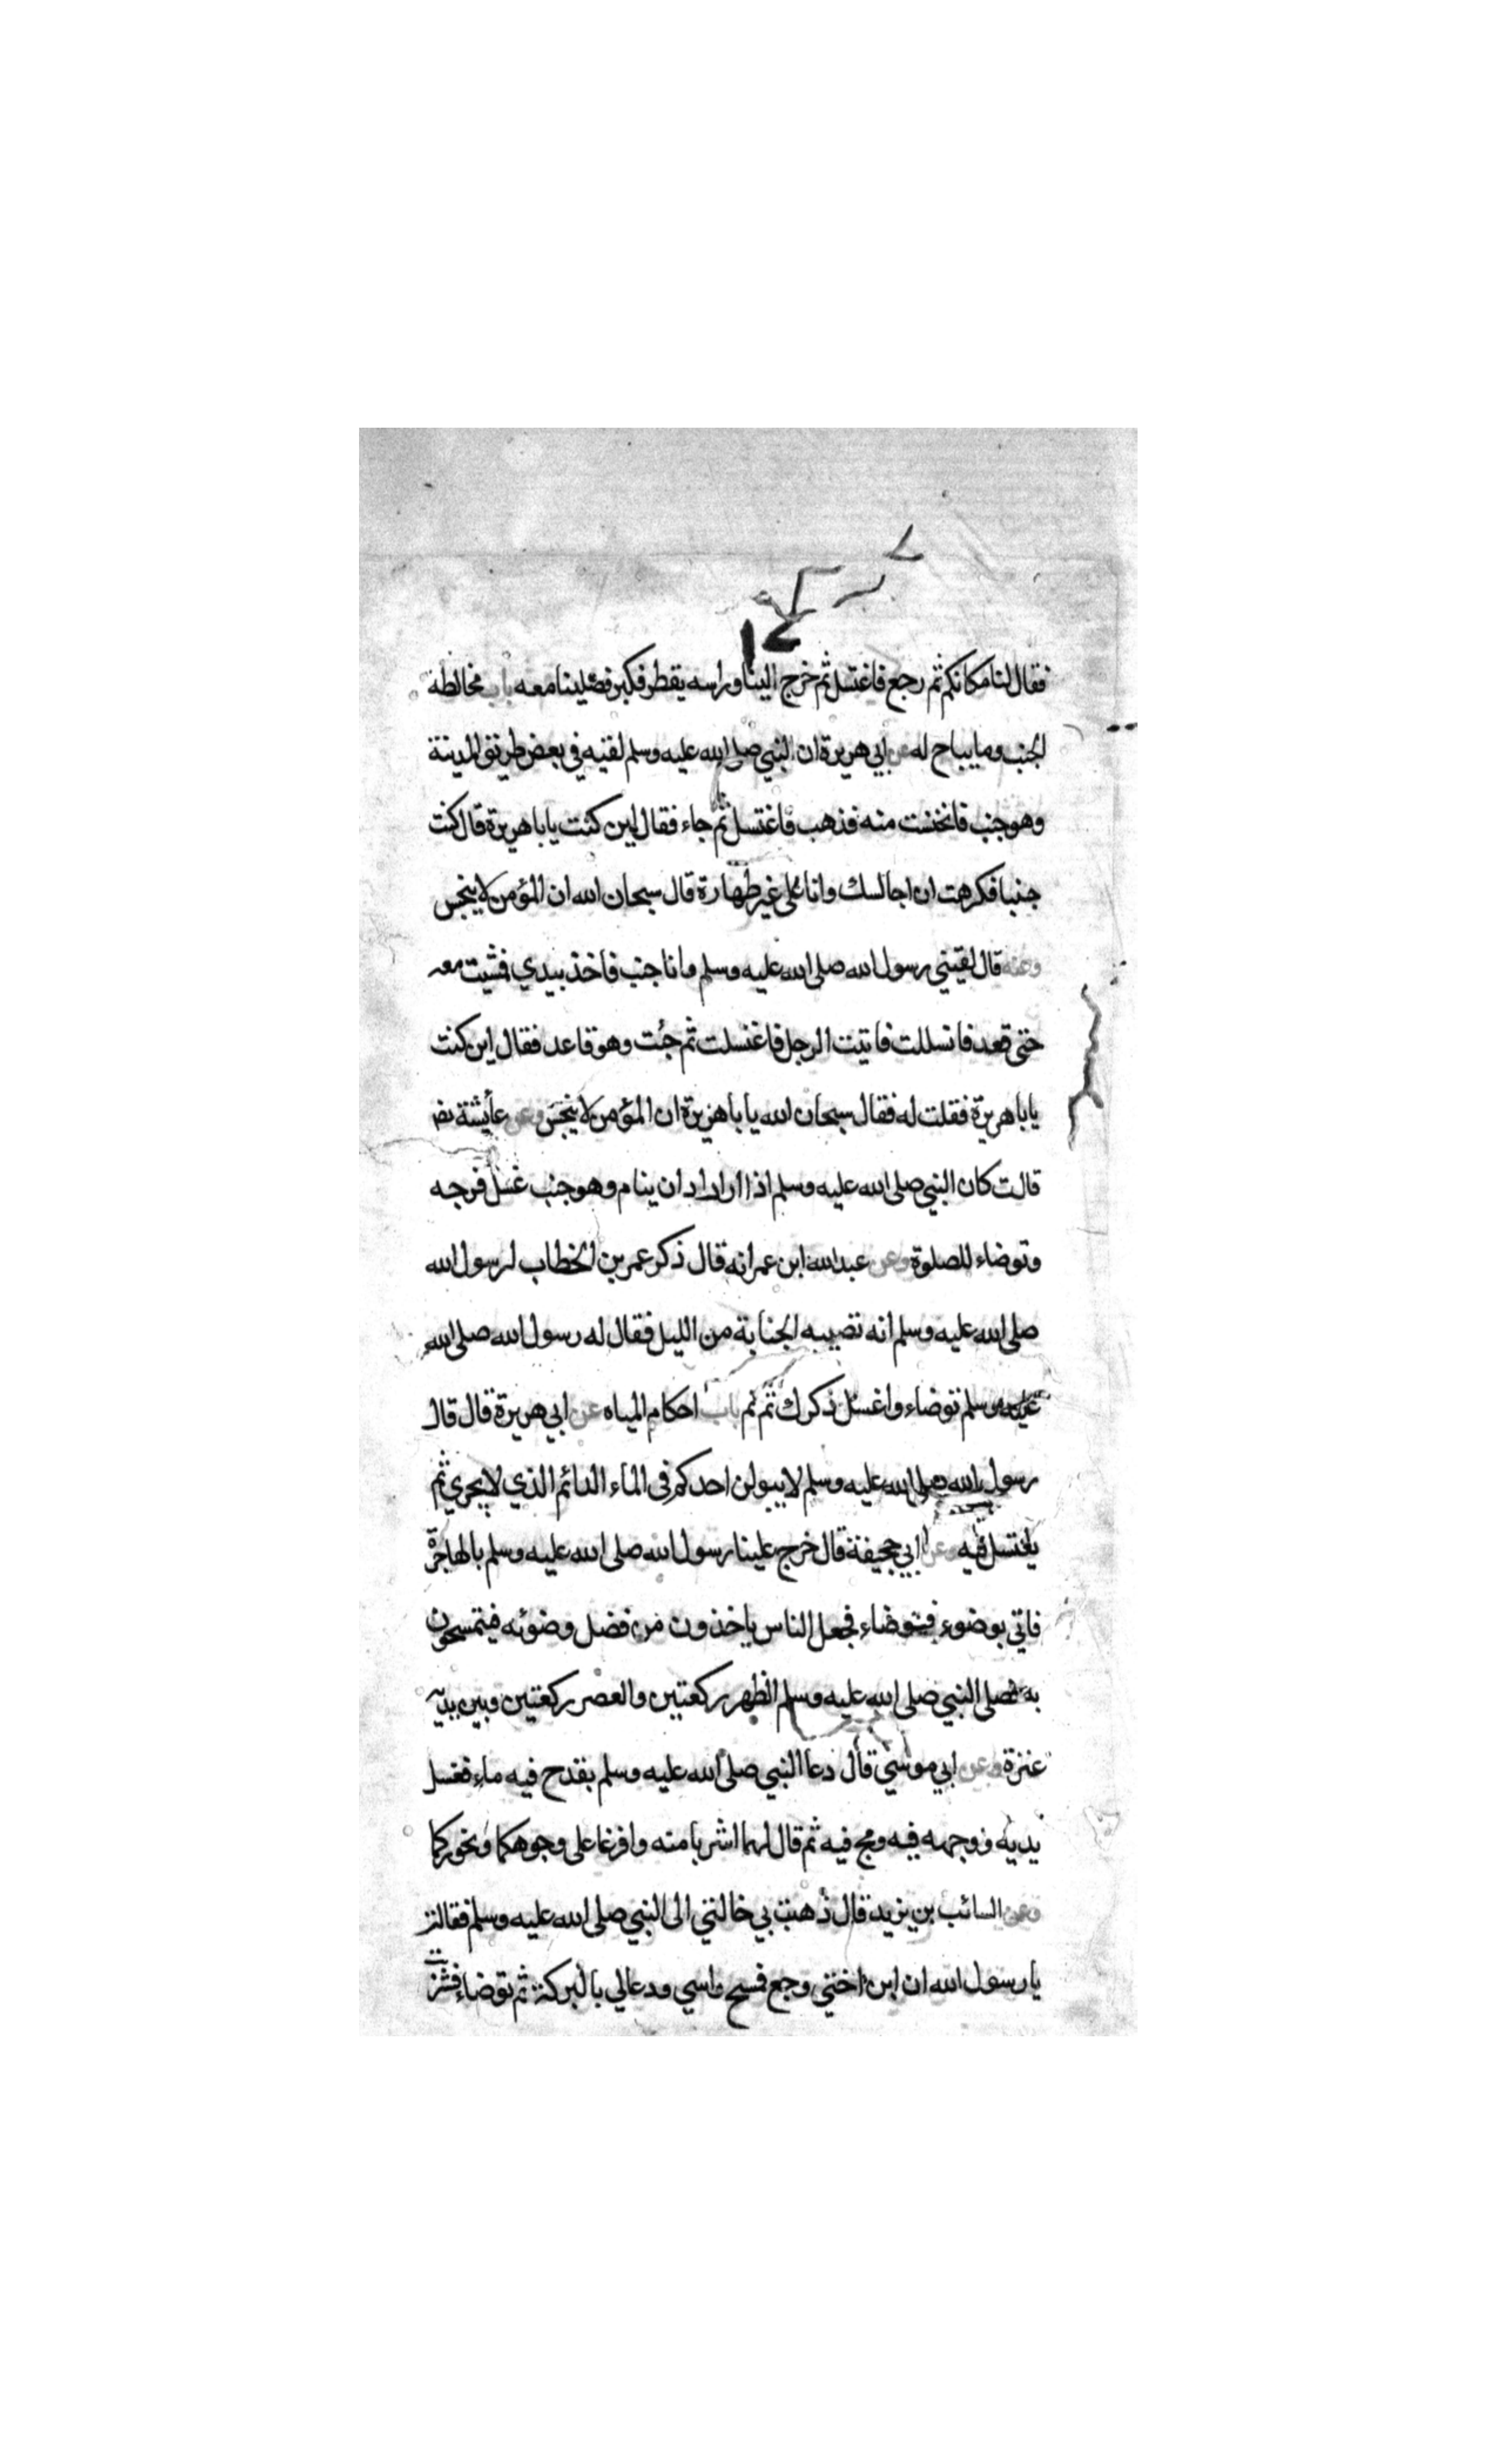 فقال لنا مكانكم ثم رجع فاغتسل ثم خرج الينا وراسه يقطر فكبر فصلينا معه باب مخالطة
الجنب وما يباح له عن ابي هريرة ان النبي صلى الله عليه وسلم لقيه في بعض طريق المدينة
وهو جنب فانخنست منه فذهب فاغتسل ثم جاء فقال اين كنت يابا هريرة قال كنت
جنبا فكرهت ان اجالسك وانا على غير طهارة قال سبحان الله ان المؤمن لا ينجس
وعنه قال لقيني رسول الله صلى الله عليه وسلم وانا جنب فاخذ بيدي فمشيت معه
حتى قعد فانسللت فاتيت الرحل فاغتسلت ثم جئت وهو قاعد فقال اين كنت
يابا هريرة فقلت له فقال سبحان الله يابا هريرة ان المؤمن لا ينجس وعن عايشة
قالت كان النبي صلى الله عليه وسلم اذا اراد ان ينام وهو جنب غسل فرجه
وتوضاء للصلوة وعن عبد الله ابن عمر انه قال ذكر عمر بن الخطاب لرسول الله
صلى الله عليه وسلم انه تصيبه الجنابة من الليل فقال له رسول الله صلى الله
عليه وسلم توضاء واغسل ذكرك ثم نم باب احكام المياه عن ابي هريرة قال قال
رسول الله صلى الله عليه وسلم لا يبولن احدكم في الماء الدائم الذي لا يجري ثم
يغتسل فيه وعن ابي جحيفة قال خرج علينا رسول الله صلى الله عليه وسلم بالهاجرة
فاتي بوضوء فتوضاء فجعل الناس ياخذون من فضل وضوئه فيتمسحون
به فصلى النبي صلى الله عليه وسلم الظهر ركعتين والعصر ركعتين وبين يديه
عنزة وعن ابي موسي قال دعا النبي صلى الله عليه وسلم بقدح فيه ماء فغسل
يديه ووجهه فيه ومج فيه ثم قال لهما اشربا منه وافرغا على وجوهكما ونحوركما
وعن السائب بن يزيد قال ذهبت بي خالتي الى النبي صلى الله عليه وسلم فقالت
يا رسول الله ان ابن اختي وجع فمسح راسي ودعا لي بالبركة ثم توضاء فشربت